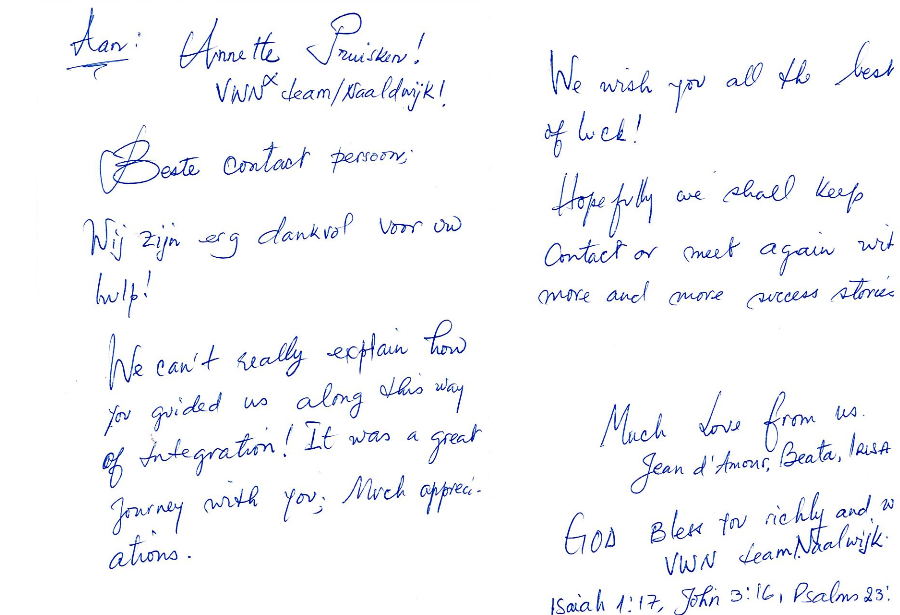 Aan: Annette Pruisken!
VWN & team/Naaldwijk!
Beste contact persoon;
Wij zijn erg dankvol voor uw
hulp!
We can't really explain how
you guided us along this way
of Integration! It was a great
Journey with you; Much appreci-
ations.
We wish you all the best
of luck!
Hopefully we shall keep
Contact or meet again wit
more and more success stories
Much Love from us.
Jean d'Amour, Beata, IRISA
GOD Bless You richly and w
VWN team Naalwijk.
Isaiah 1:17, John 3:16, Psalms 23: